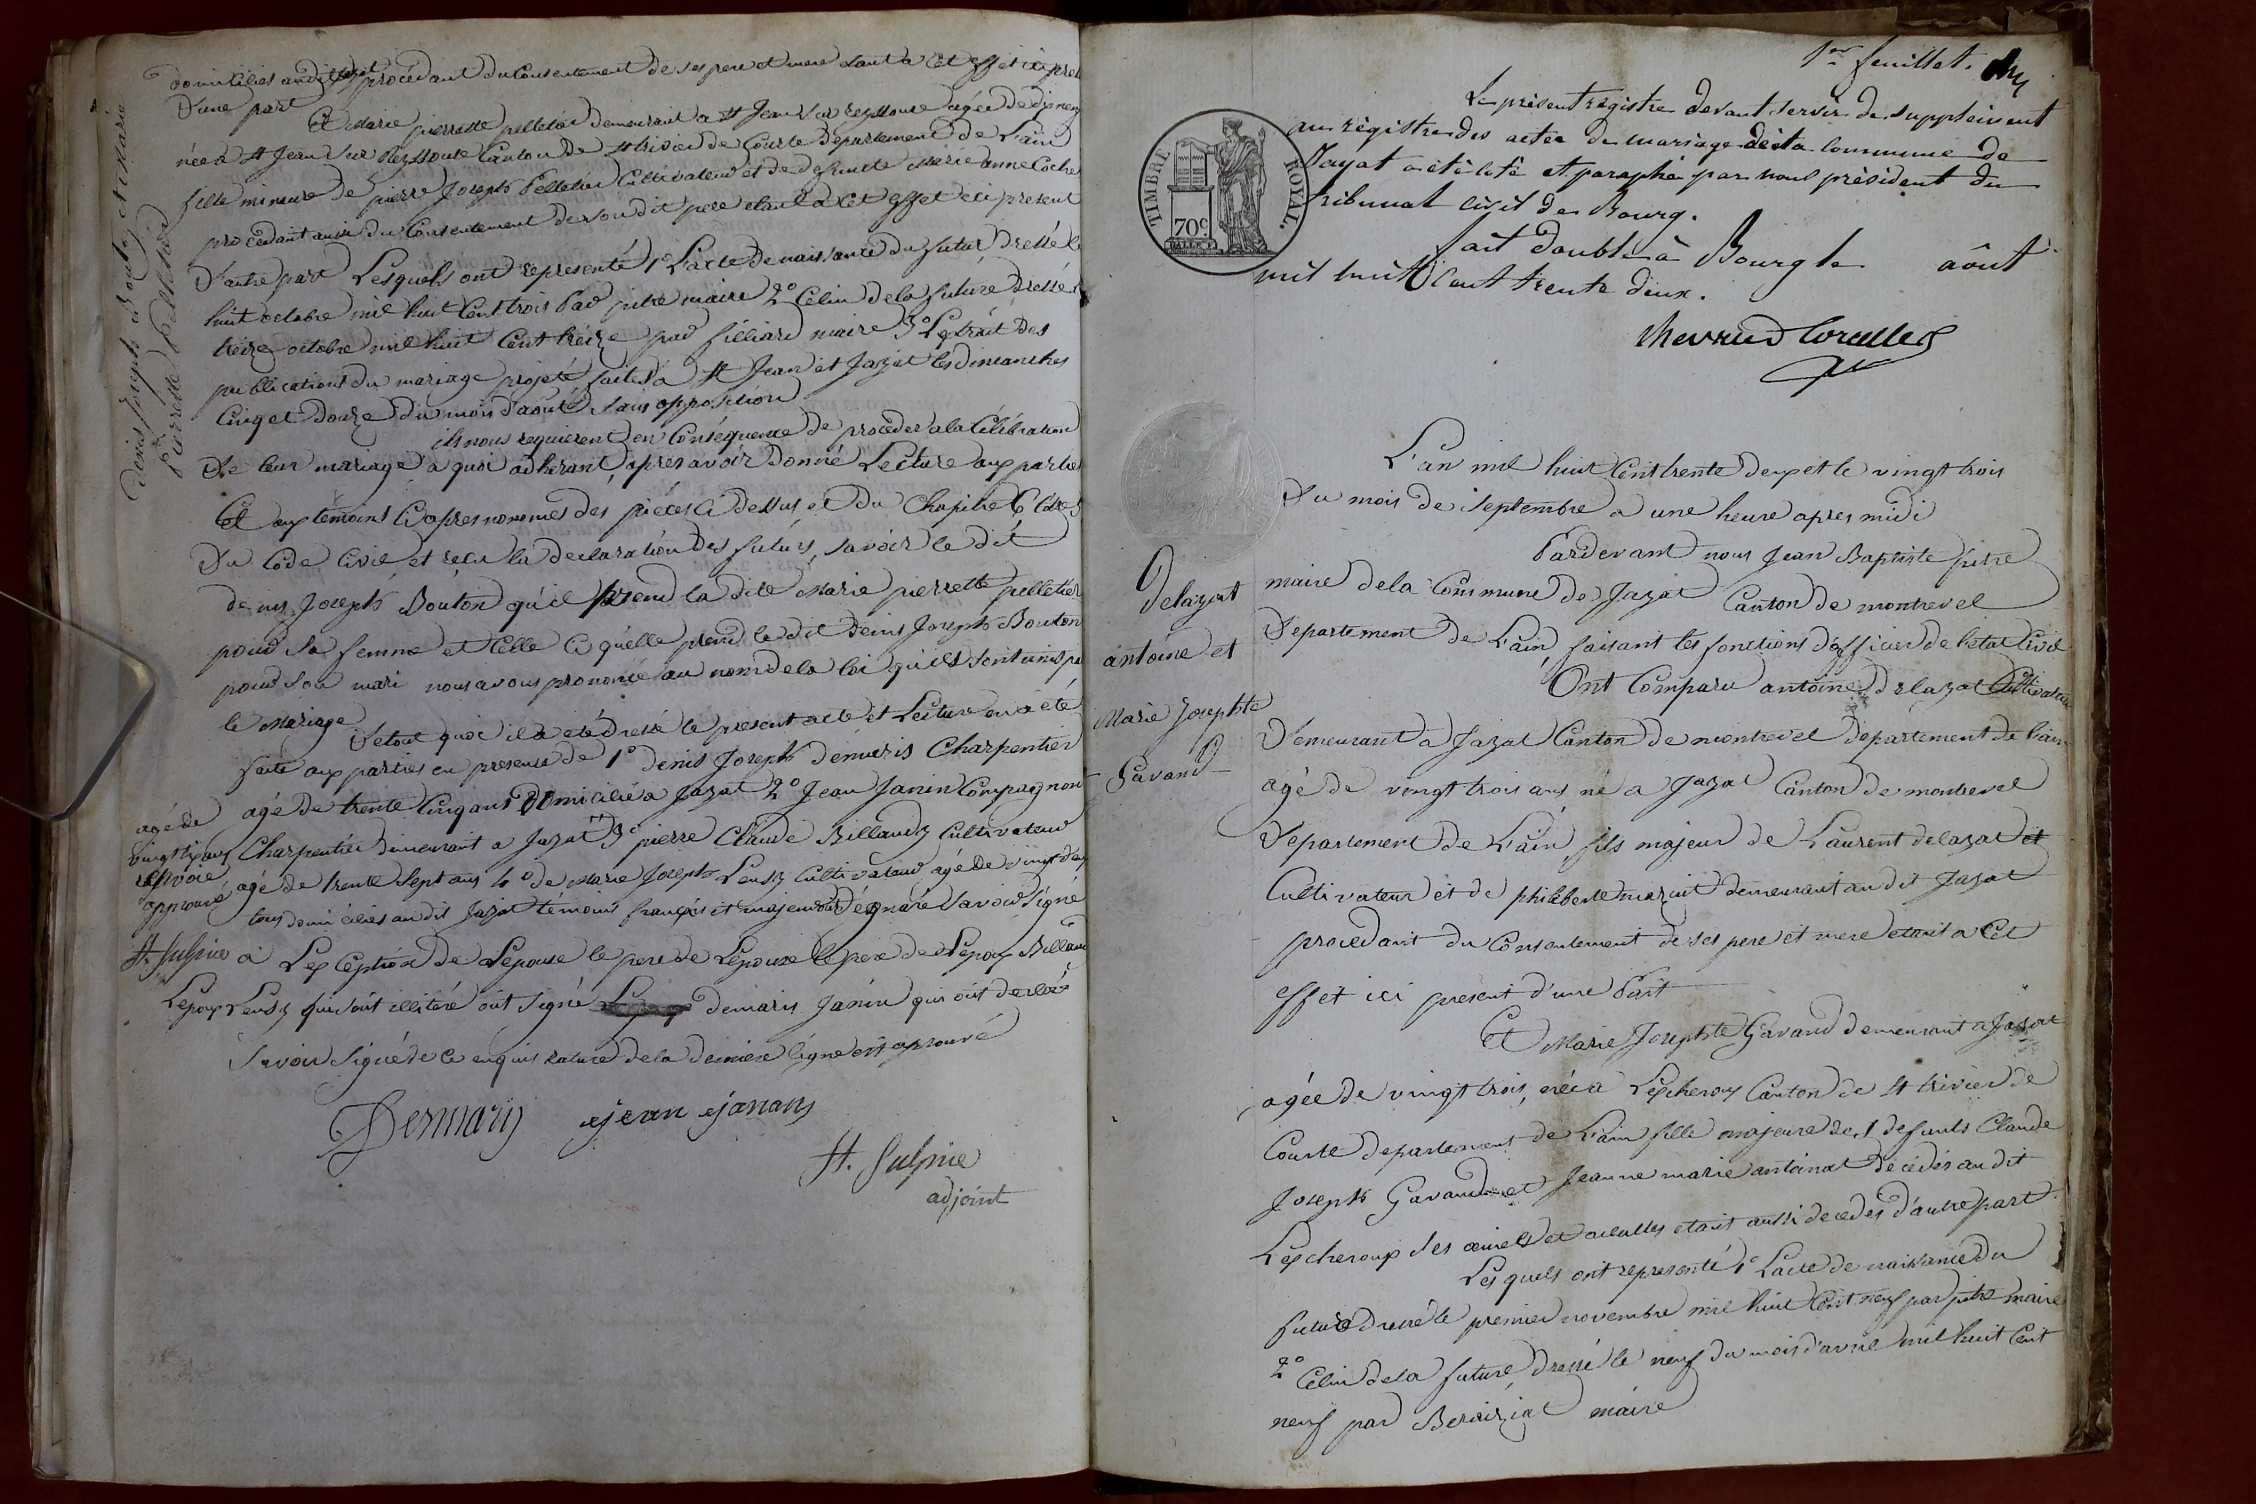 domiciliés audit Jayat procédant du Consentement de ses pere et mere étant a cet effet ici pres
D'une part
Et Marie pierrette pelletier demeurant a St Jean sur reyssouze agée de dix neuf
née a St Jean sur Reyssouze Canton de St trivier de Courte Departement de L'ain
fille mineure de pierre Joseph Pelletier Cultivateur et de defunte Marie anne Coche
procedant aussi du Consentement de son dit pere etant a cet effet ici present
D'autre part Lesquels ont representé 1o L'acte de naissance du futur Dressé le
huit octobre mil huit Cent trois Par pitre maire 2o Celui de la future Dressé
treize octobre mil huit Cent treize par filliard maire 3o L'extrait des
publications du mariage projeté faites a St Jean et Jayat les dimanches
Cinq et Douze du mois d'août sans opposition
ils nous requierent en Conséquence de proceder a la Célébration
De leur mariage a quoi adherant, apres avoir Donné Lecture aux parties
Et aux temoins Ci apres nommés des pièces Ci dessus et Du Chapitre 6 titre 5
Du Code Civil et recu la declaration Des futurs, savoir le dit
denis Joseph Bouton qu'il prend la dite Marie pierrette pelletier
pour Sa femme et Celle Ci quelle prend le dit Denis Joseph Bouton
pour Son mari nous avons prononcé au nom de la loi qu'ils sont unis par
le Mariage
De tout quoi il a été dressé le present acte et Lecture en a été
faite aux parties en presence de 1o denis Joseph demuris Charpentier
agé de trente Cinq ans Domicilié a Jayat 2o Jean Janin Compagnon
Charpentier demeurant a Jayat 3o pierre Claude Billaud Cultivateur
agé de trente sept ans 4o de Marie Joseph Cultivateur agé de vingt
tous domiciliés audit Jayat temoins français et majeurs Savoir Signé
a L'exception de L'epouse le pere de L'epouse le pere de L'epoux Billaud
L'epoux qui sont illitéré ont signé demaris Janin qui ont declaré
Savoir Signé de ce enquis rature de la derniere ligne est aprouvé
Demaris
jean janans
St. Sulpice
adjoint
agé de
vingt six ans
renvoie
approuvé
St. Sulpice
Denis Joseph Bouton et Marie
Pierrette Pelletier
1er feuillet.
Le présent régistre devant servir de supplément
au régistre des actes de mariage de la Commune de
Jayat a été coté et paraphé par nous président du
tribunal civil de Bourg.
fait double à Bourg le août
mil huit Cent trente deux.
TIMBRE ROYAL.
70c
L'an mil huit Cent trente deux et le vingt trois
Du mois de Septembre a une heure apres midi
Pardevant nous Jean Baptiste pitre
maire de la Commune de Jayat Canton de montrevel
Departement de L'ain, faisant les fonctions d'officier de l'etat Civil
Ont Comparu antoine Delazat Cultivateur
Demeurant a Jayat Canton de montrevel departement de l'ain
agé de vingt trois ans né a Jayat Canton de montrevel
Departement de L'ain fils majeur de Laurent delazat et
Cultivateur et de philiberte mazuit demeurant au dit Jayat
procedant du Consentement de ses pere et mere etant a Cet
effet ici present d'une Part
Et Marie Josephte Gavand demeurant a Jayat
agée de vingt trois, née a Lescheroux Canton de St trivier de
Courte departement de L'ain fille majeure des defunts Claude
Joseph Gavand et Jeanne marie antoinat Décédés au dit
Lescheroux Ses aieuls et aieulles etait aussi decedés d'autre part
Les quels ont representé 1o L'acte de naissance du
futur dressé le premier novembre mil huit Cent neuf par pitre maire
2o Celui de la future dressé le neuf du mois d'avril mil huit Cent
neuf par Beraiziat maire
Delazat
antoine et
Marie Josephte
Gavand